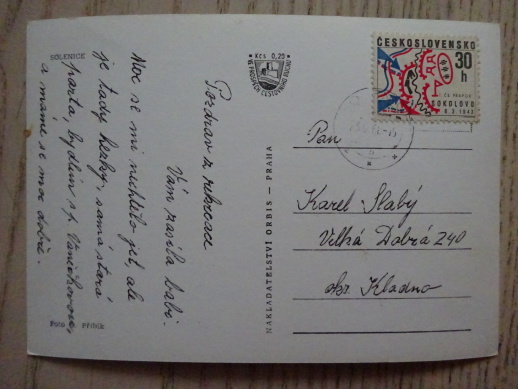 SOLENICE
Pozdrav z rekreace
Vám zasílá babi.
Moc se mi nechtělo jet, ale
je tady hezky, sama stará
parta, bydlím s p.
a máme se moc dobře.
Foto Přibík
Kčs 0,20
NAKLADATELSTVÍ ORBIS — PRAHA
ČESKOSLOVENSKO
30 h
SOKOLOVO
8.3.1943
Pan
Karel Slabý
Velká Dobrá 240
okr. Kladno